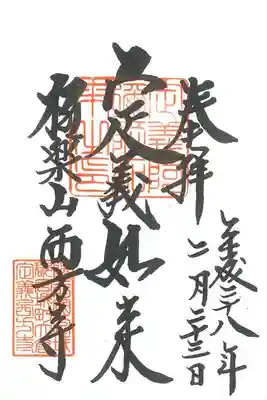 奉拝
平成二十八年
二月二十三日
定義如来
極楽山西方寺